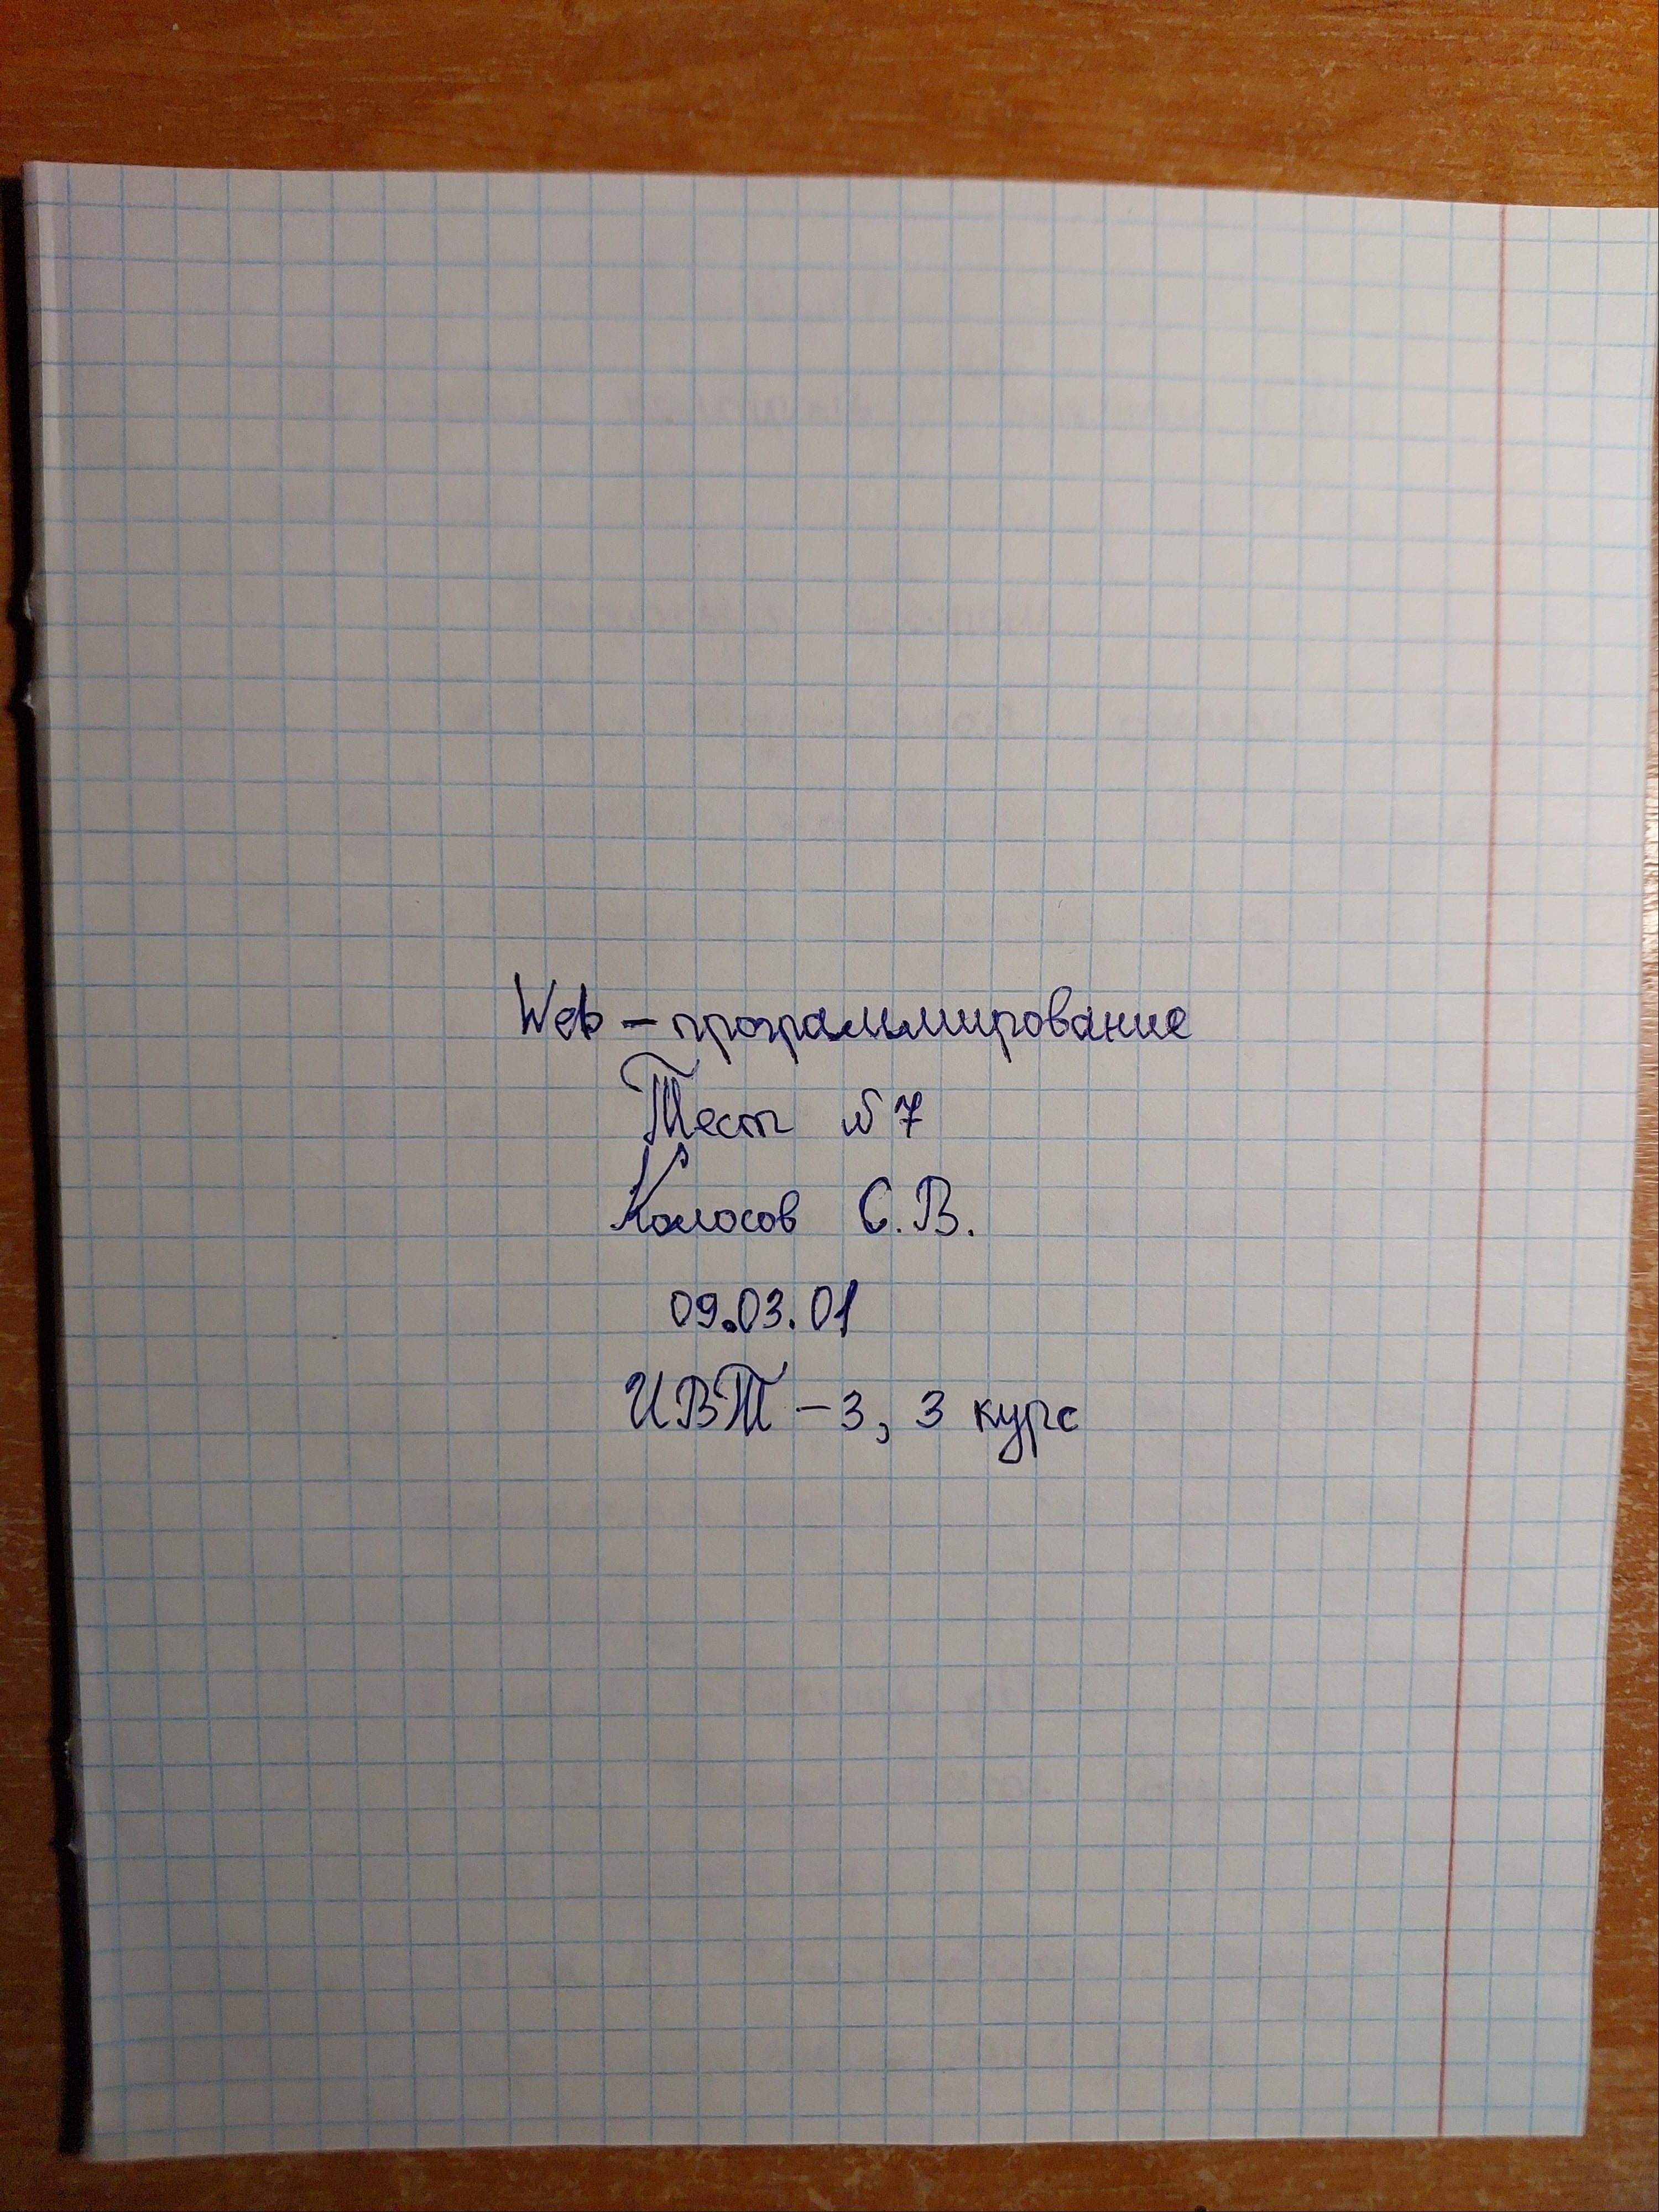 Web - программирование
Тест №7
Колосов С.В.
09.03.01
ИВТ - 3, 3 курс